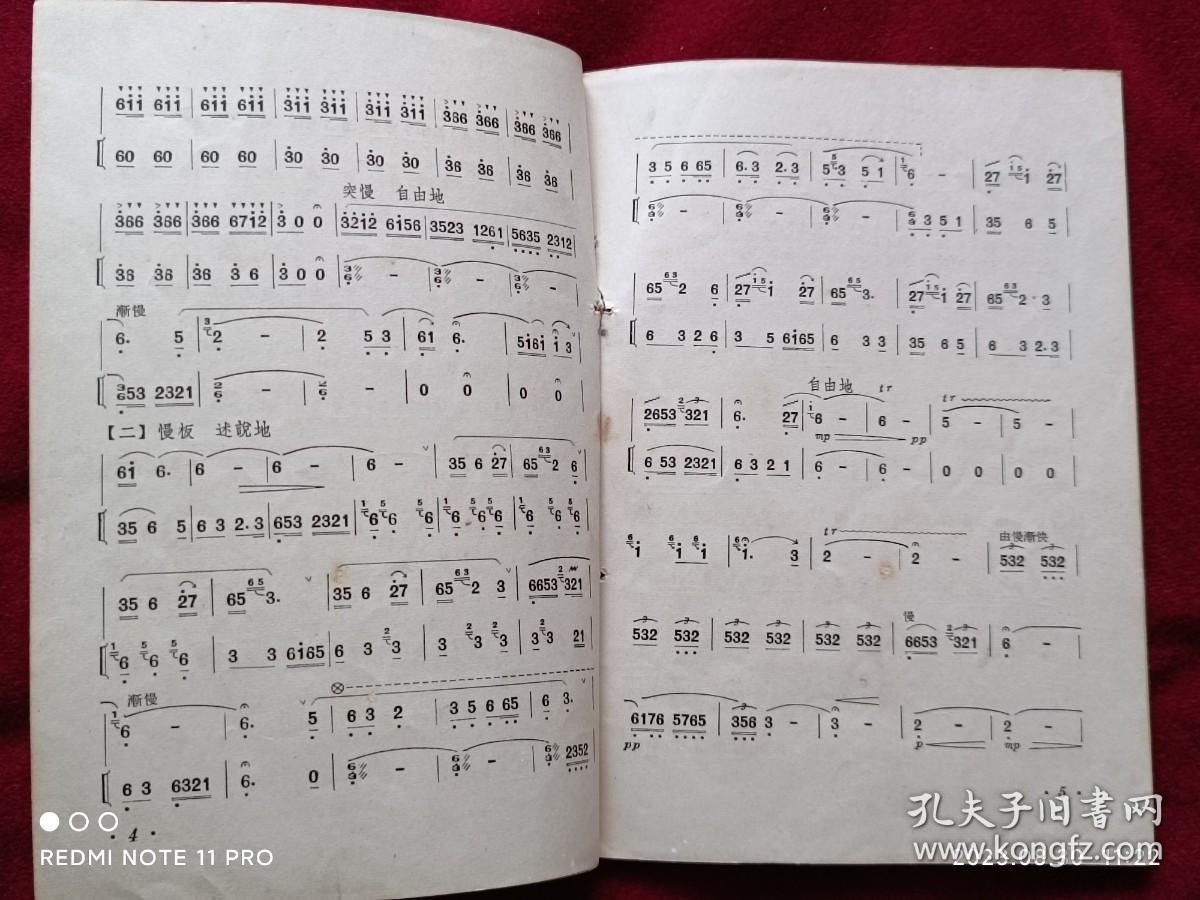 6i̇i̇ 6i̇i̇ | 6i̇i̇ 6i̇i̇ | 3̇i̇i̇ 3̇i̇i̇ | 3̇i̇i̇ 3̇i̇i̇ | 3̇66 3̇66 | 3̇66 3̇66
60 60 | 60 60 | 3̇0 3̇0 | 3̇0 3̇0 | 3̇6 3̇6 | 3̇6 3̇6
突慢 自由地
3̇66 3̇66 | 3̇66 67i̇2̇ | 3̇ 0 0 | 3̇2̇i̇2̇ 6i̇56 | 3523 1261 | 5635 2312
3̇6 3̇6 | 3̇6 3̇ 6 | 3̇ 0 0 | – | – | –
漸慢
6. 5 | 2 – | 2 5 3 | 6i̇ 6. | 5i̇6i̇ i̇ 3
53 2321 | – | | 0 0 | 0 0
【二】慢板 述說地
6i̇ 6. | 6 – | 6 – | 6 – | 35 6 27 | 65 2 6
35 6 5 | 6 3 2.3 | 653 2321 | 6 6 6 | 6 6 6 | 6 6 6
35 6 27 | 65 3. | 35 6 27 | 65 2 3 | 6653 321
6 6 6 | 3 3 6i̇65 | 6 3 3 | 3 3 3 | 3 3 21
漸慢
6 – | 6. 5 | 6 3 2 | 3 5 6 65 | 6 3.
6 3 6321 | 6. 0 | – | – | 2352
· 4 ·
3 5 6 65 | 6.3 2.3 | 5 3 5 1 | 6 – | 27 i̇ 27
– | – | – | 3 5 1 | 35 6 5
65 2 6 | 27 i̇ 27 | 65 3. | 27 i̇ 27 | 65 2 · 3
6 3 2 6 | 3 5 6i̇65 | 6 3 3 | 35 6 5 | 6 3 2.3
自由地 tr tr
2653 321 | 6. 27 | 6 – | 6 – | 5 – | 5 –
mp pp
6 53 2321 | 6 3 2 1 | 6 – | 6 – | 0 0 | 0 0
tr 由慢漸快
i̇ i̇ i̇ | i̇. 3 | 2 – | 2 – | 532 532
慢
532 532 | 532 532 | 532 532 | 6653 321 | 6 –
6176 5765 | 356 3 – | 3 – | 2 – | 2 –
pp p mp
· 5 ·
孔夫子旧書网
www.kongfz.com
REDMI NOTE 11 PRO
11:22